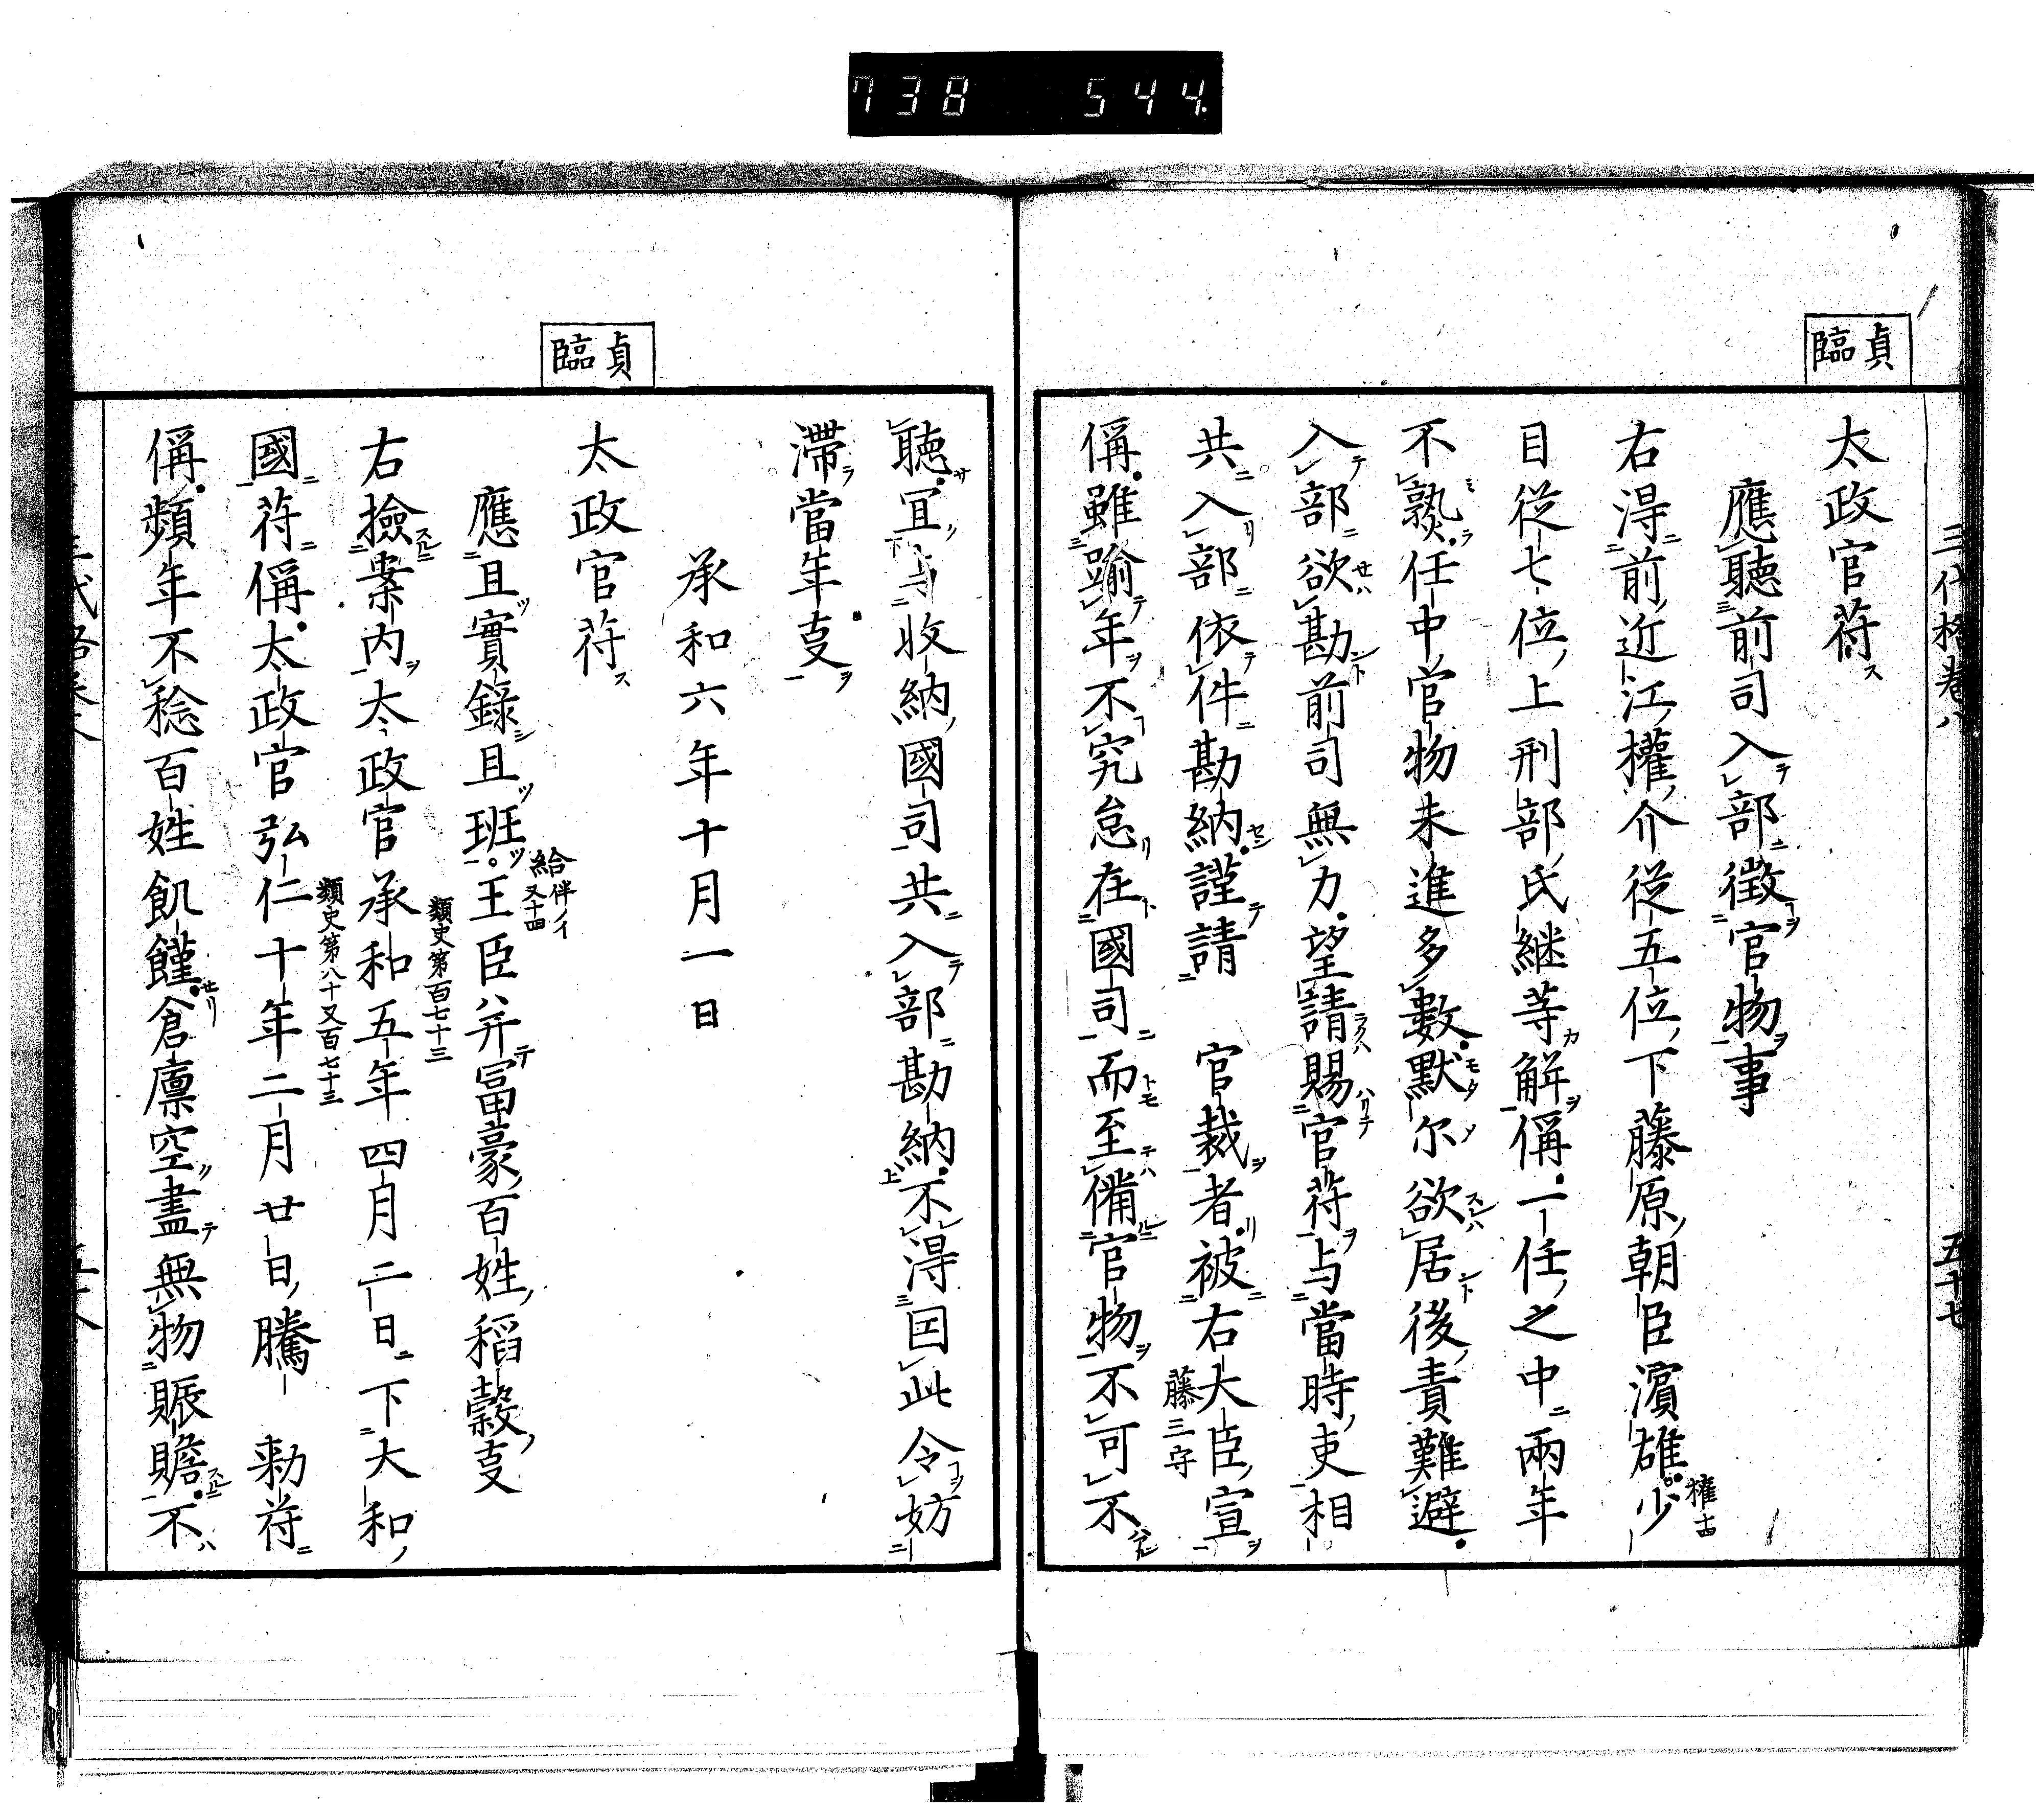 738 544
三代格卷八
五十七
貞臨
太政官苻
應聽前司入部徴官物事
右得前近江權介從五位下藤原朝臣濱雄少
權
目從七位上刑部氏継等解偁一任之中兩年
不熟任中官物未進多數默尓欲居後責難避
入部欲勘前司無力望請賜官苻与當時吏相
共入部依件勘納謹請 官裁者被右大臣宣
藤三守
偁雖踰年不究怠在國司而至備官物不可不
聽宜与收納國司共入部勘納不得因此令妨
滯當年支
承和六年十月一日
貞臨
太政官苻
應且實録且班王臣并冨豪百姓稻穀支
給 伴ノイ 又十四
右撿案内太政官承和五年四月二日下大和
類史第百七十三
國苻偁太政官弘仁十年二月廿日騰 勅苻
類史第八十又百七十三
偁頻年不稔百姓飢饉倉廪空盡無物賑贍不